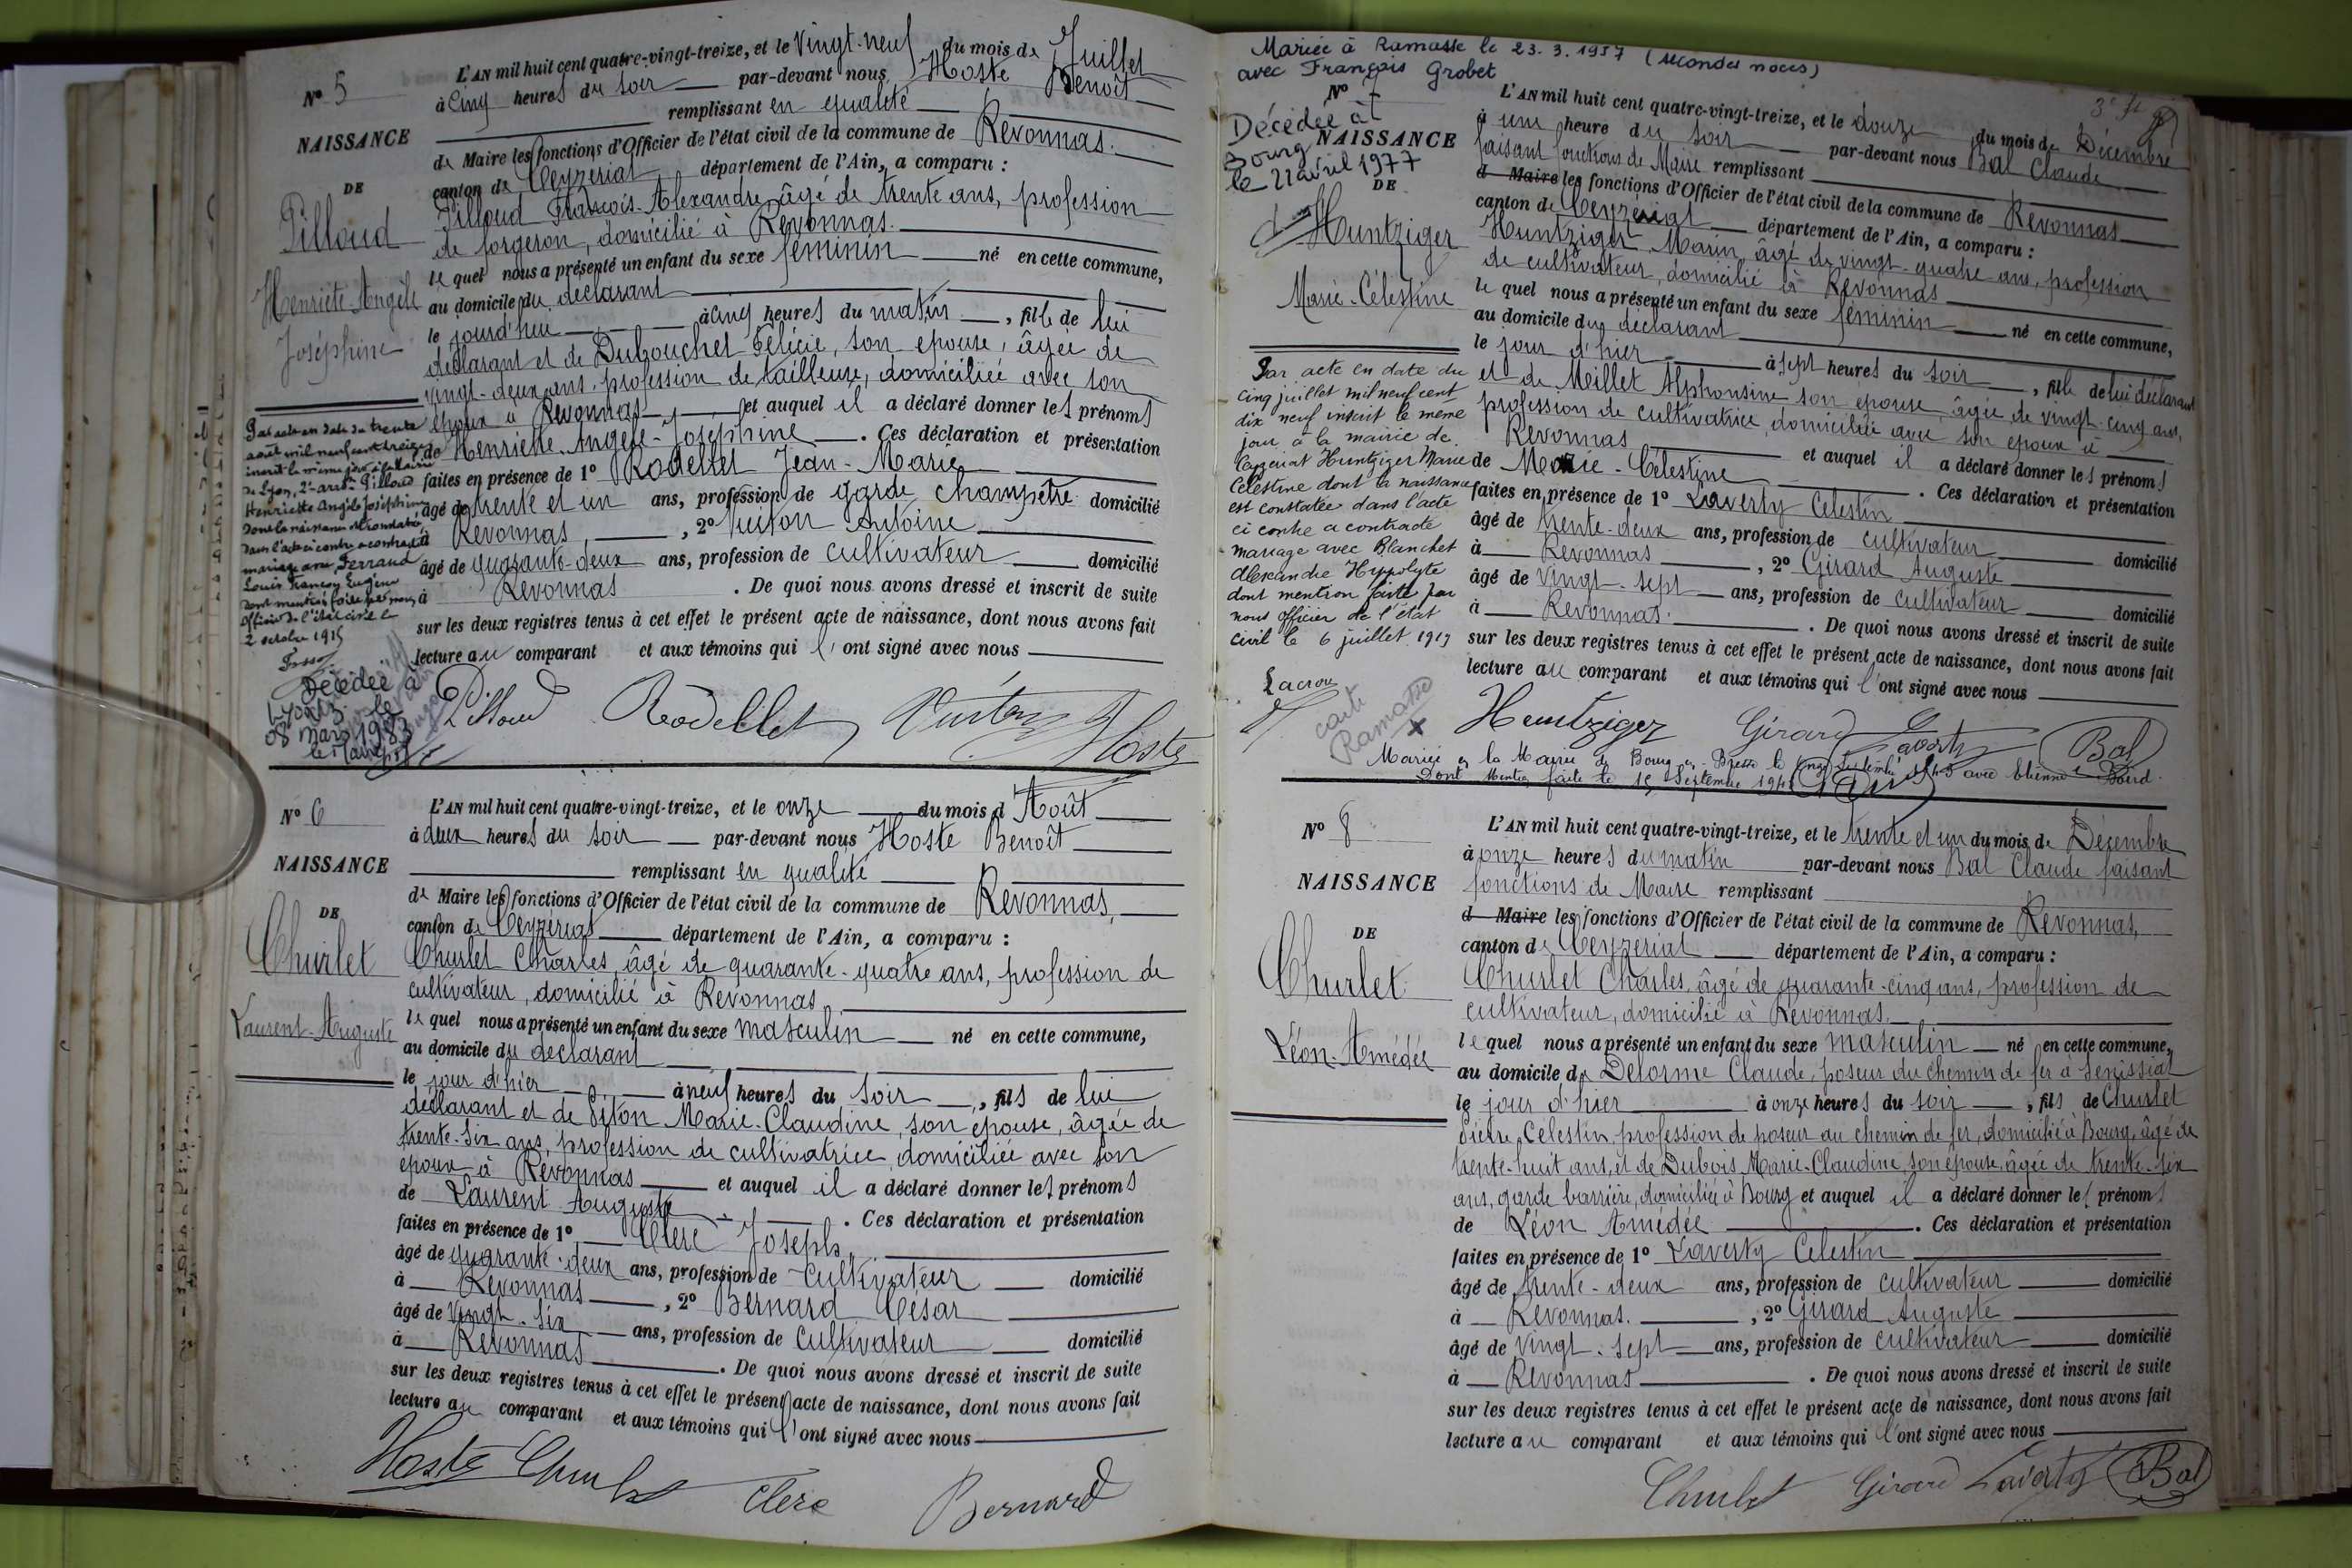 N° 5
NAISSANCE
DE
Pilloud
Henriette-Angèle
Joséphine
L'AN mil huit cent quatre-vingt-treize, et le Vingt-neuf du mois de Juillet
à Cinq heures du soir par-devant nous Hoste Benoît
remplissant en qualité
de Maire les fonctions d'Officier de l'état civil de la commune de Revonnas.
canton de Ceyzériat département de l'Ain, a comparu :
Pilloud François-Alexandre âgé de trente ans, profession
de forgeron, domicilié à Revonnas.
le quel nous a présenté un enfant du sexe féminin né en cette commune,
au domicile du déclarant
le jourd'hui à cinq heures du matin, fille de lui
déclarant et de Dubouchet Félicie, son épouse, âgée de
vingt-deux ans, profession de tailleuse, domiciliée avec son
époux à Revonnas et auquel il a déclaré donner les prénoms
de Henriette-Angèle-Joséphine. Ces déclaration et présentation
faites en présence de 1° Rodellet Jean-Marie
âgé de trente et un ans, profession de garde champêtre domicilié
à Revonnas, 2° Antoine
âgé de quarante-deux ans, profession de cultivateur domicilié
à Revonnas. De quoi nous avons dressé et inscrit de suite
sur les deux registres tenus à cet effet le présent acte de naissance, dont nous avons fait
lecture au comparant et aux témoins qui l'ont signé avec nous
Par acte en date du trente
août mil neuf cent treize
inscrit le même jour à la mairie
de Lyon, 2e arrt Pilloud
Henriette Angèle Joséphine
dont la naissance est constatée
dans l'acte ci contre a contracté
mariage avec Ferrand
Louis François Eugène
dont mention faite par nous
officier de l'état civil le
2 octobre 1915
Décédée à
le
08 mars 1983
Pilloud Rodellet Hoste
N° 6
NAISSANCE
DE
Churlet
Laurent-Auguste
L'AN mil huit cent quatre-vingt-treize, et le onze du mois d'Août
à deux heures du soir par-devant nous Hoste Benoît
remplissant en qualité
de Maire les fonctions d'Officier de l'état civil de la commune de Revonnas,
canton de Ceyzériat département de l'Ain, a comparu :
Churlet Charles, âgé de quarante-quatre ans, profession de
cultivateur, domicilié à Revonnas,
le quel nous a présenté un enfant du sexe masculin né en cette commune,
au domicile du déclarant
le jour d'hier à neuf heures du soir, fils de lui
déclarant et de Piton Marie-Claudine, son épouse, âgée de
trente-six ans, profession de cultivatrice, domiciliée avec son
époux à Revonnas et auquel il a déclaré donner les prénoms
de Laurent Auguste. Ces déclaration et présentation
faites en présence de 1° Clerc Joseph,
âgé de quarante-deux ans, profession de cultivateur domicilié
à Revonnas, 2° Bernard César
âgé de vingt-six ans, profession de cultivateur domicilié
à Revonnas. De quoi nous avons dressé et inscrit de suite
sur les deux registres tenus à cet effet le présent acte de naissance, dont nous avons fait
lecture au comparant et aux témoins qui l'ont signé avec nous
Hoste Churlet Clerc Bernard
Mariée à Ramasse le 23.3.1957 (secondes noces)
avec François Grobet
N° 7
Décédée à
Bourg
le 21 avril 1977
NAISSANCE
DE
Huntziger
Marie-Célestine
L'AN mil huit cent quatre-vingt-treize, et le douze du mois de Décembre
à une heure du soir par-devant nous Bal Claude
faisant fonctions de Maire remplissant
d Maire les fonctions d'Officier de l'état civil de la commune de Revonnas
canton de Ceyzériat département de l'Ain, a comparu :
Huntziger Marin, âgé de vingt-quatre ans, profession
de cultivateur, domicilié à Revonnas
le quel nous a présenté un enfant du sexe féminin né en cette commune,
au domicile du déclarant
le jour d'hier à sept heures du soir, fille de lui déclarant
et de Millet Alphonsine son épouse âgée de vingt-cinq ans,
profession de cultivatrice, domiciliée avec son époux à
Revonnas et auquel il a déclaré donner les prénoms
de Marie-Célestine. Ces déclaration et présentation
faites en présence de 1° Laverty Célestin
âgé de trente-deux ans, profession de cultivateur domicilié
à Revonnas, 2° Girard Auguste
âgé de vingt-sept ans, profession de cultivateur domicilié
à Revonnas. De quoi nous avons dressé et inscrit de suite
sur les deux registres tenus à cet effet le présent acte de naissance, dont nous avons fait
lecture au comparant et aux témoins qui l'ont signé avec nous
Par acte en date du
cinq juillet mil neuf cent
dix neuf inscrit le même
jour à la mairie de
Ceyzeriat Huntziger Marie
Célestine dont la naissance
est constatée dans l'acte
ci contre a contracté
mariage avec Blanchet
Alexandre Hippolyte
dont mention faite par
nous officier de l'état
civil le 6 juillet 1919
Lacroix
carte
Ramasse
Huntziger Girard Laverty Bal
Mariée à la Mairie de Bourg en Bresse le onze Septembre 1945 avec Etienne
Dont Mention faite le 15 Septembre 1945
N° 8
NAISSANCE
DE
Churlet
Léon-Amédée
L'AN mil huit cent quatre-vingt-treize, et le trente et un du mois de Décembre
à onze heures du matin par-devant nous Bal Claude faisant
fonctions de Maire remplissant
d Maire les fonctions d'Officier de l'état civil de la commune de Revonnas,
canton de Ceyzériat département de l'Ain, a comparu :
Churlet Charles, âgé de quarante-cinq ans, profession de
cultivateur, domicilié à Revonnas.
le quel nous a présenté un enfant du sexe masculin né en cette commune,
au domicile de Delorme Claude, poseur du chemin de fer à Senissiat
le jour d'hier à onze heures du soir, fils de Churlet
Pierre Célestin, profession de poseur au chemin de fer, domicilié à Bourg, âgé de
trente-huit ans, et de Dubois Marie-Claudine, son épouse, âgée de trente-six
ans, garde barrière, domiciliée à Bourg et auquel il a déclaré donner les prénoms
de Léon Amédée. Ces déclaration et présentation
faites en présence de 1° Laverty Célestin
âgé de trente-deux ans, profession de cultivateur domicilié
à Revonnas., 2° Girard Auguste
âgé de vingt-sept ans, profession de cultivateur domicilié
à Revonnas. De quoi nous avons dressé et inscrit de suite
sur les deux registres tenus à cet effet le présent acte de naissance, dont nous avons fait
lecture au comparant et aux témoins qui l'ont signé avec nous
Churlet Girard Laverty Bal